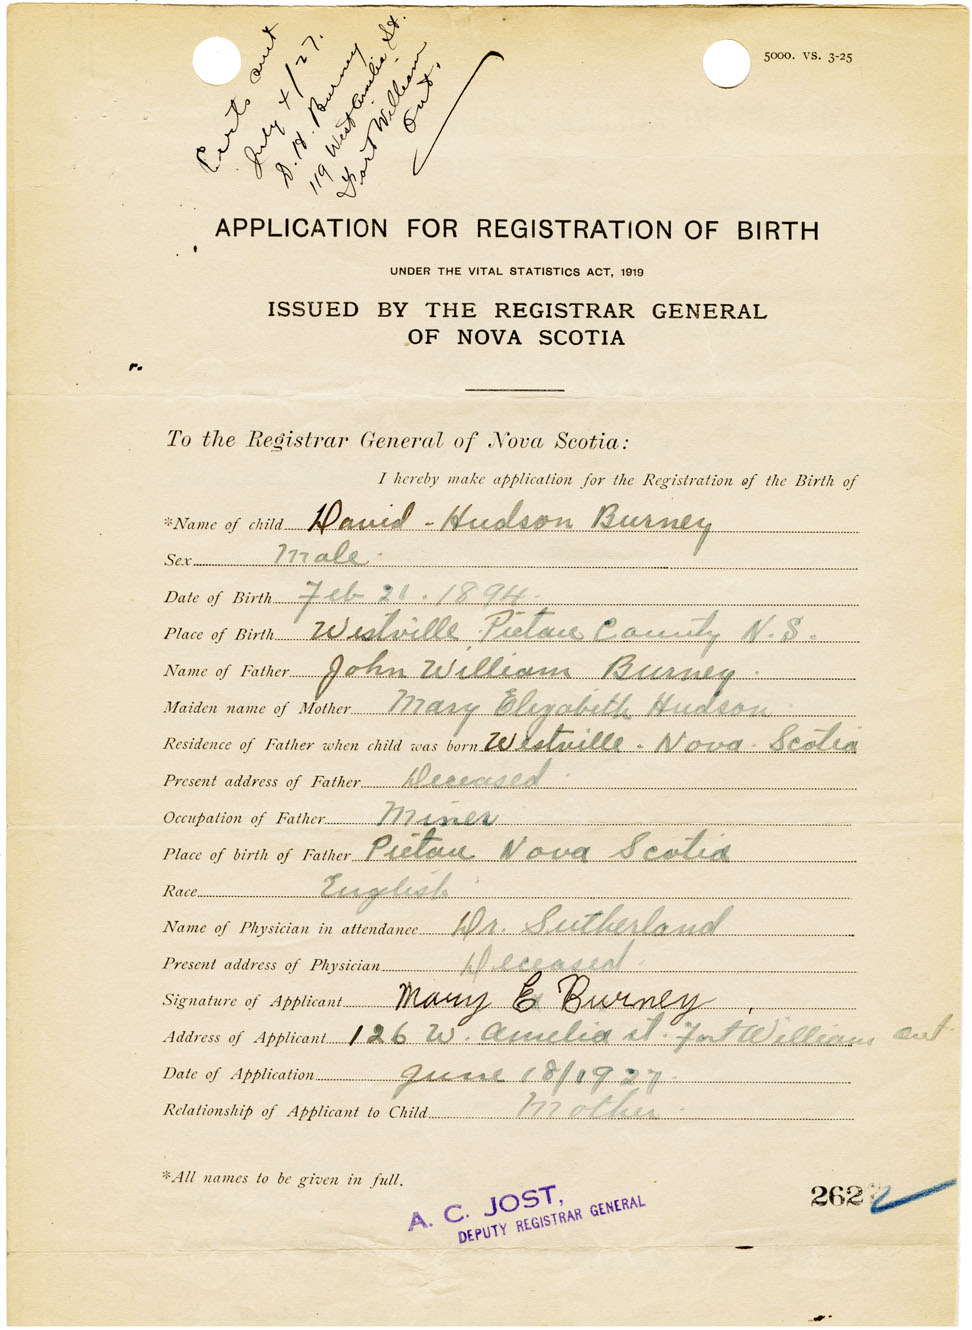 5000. VS. 3-25
Certs out
July 4/27.
D. H. Burney
119 West Amelia St.
Fort William
Ont.
APPLICATION FOR REGISTRATION OF BIRTH
UNDER THE VITAL STATISTICS ACT, 1919
ISSUED BY THE REGISTRAR GENERAL
OF NOVA SCOTIA
To the Registrar General of Nova Scotia:
I hereby make application for the Registration of the Birth of
*Name of child David - Hudson Burney
Sex Male
Date of Birth Feb 1894
Place of Birth Westville Pictou County N.S.
Name of Father John William Burney
Maiden name of Mother Mary Elizabeth Hudson
Residence of Father when child was born Westville - Nova Scotia
Present address of Father Deceased
Occupation of Father Miner
Place of birth of Father Pictou Nova Scotia
Race English
Name of Physician in attendance Dr. Sutherland
Present address of Physician Deceased
Signature of Applicant Mary E Burney
Address of Applicant 126 W. Amelia st. Fort William Ont
Date of Application June 18/1927.
Relationship of Applicant to Child Mother
*All names to be given in full.
A. C. JOST,
DEPUTY REGISTRAR GENERAL